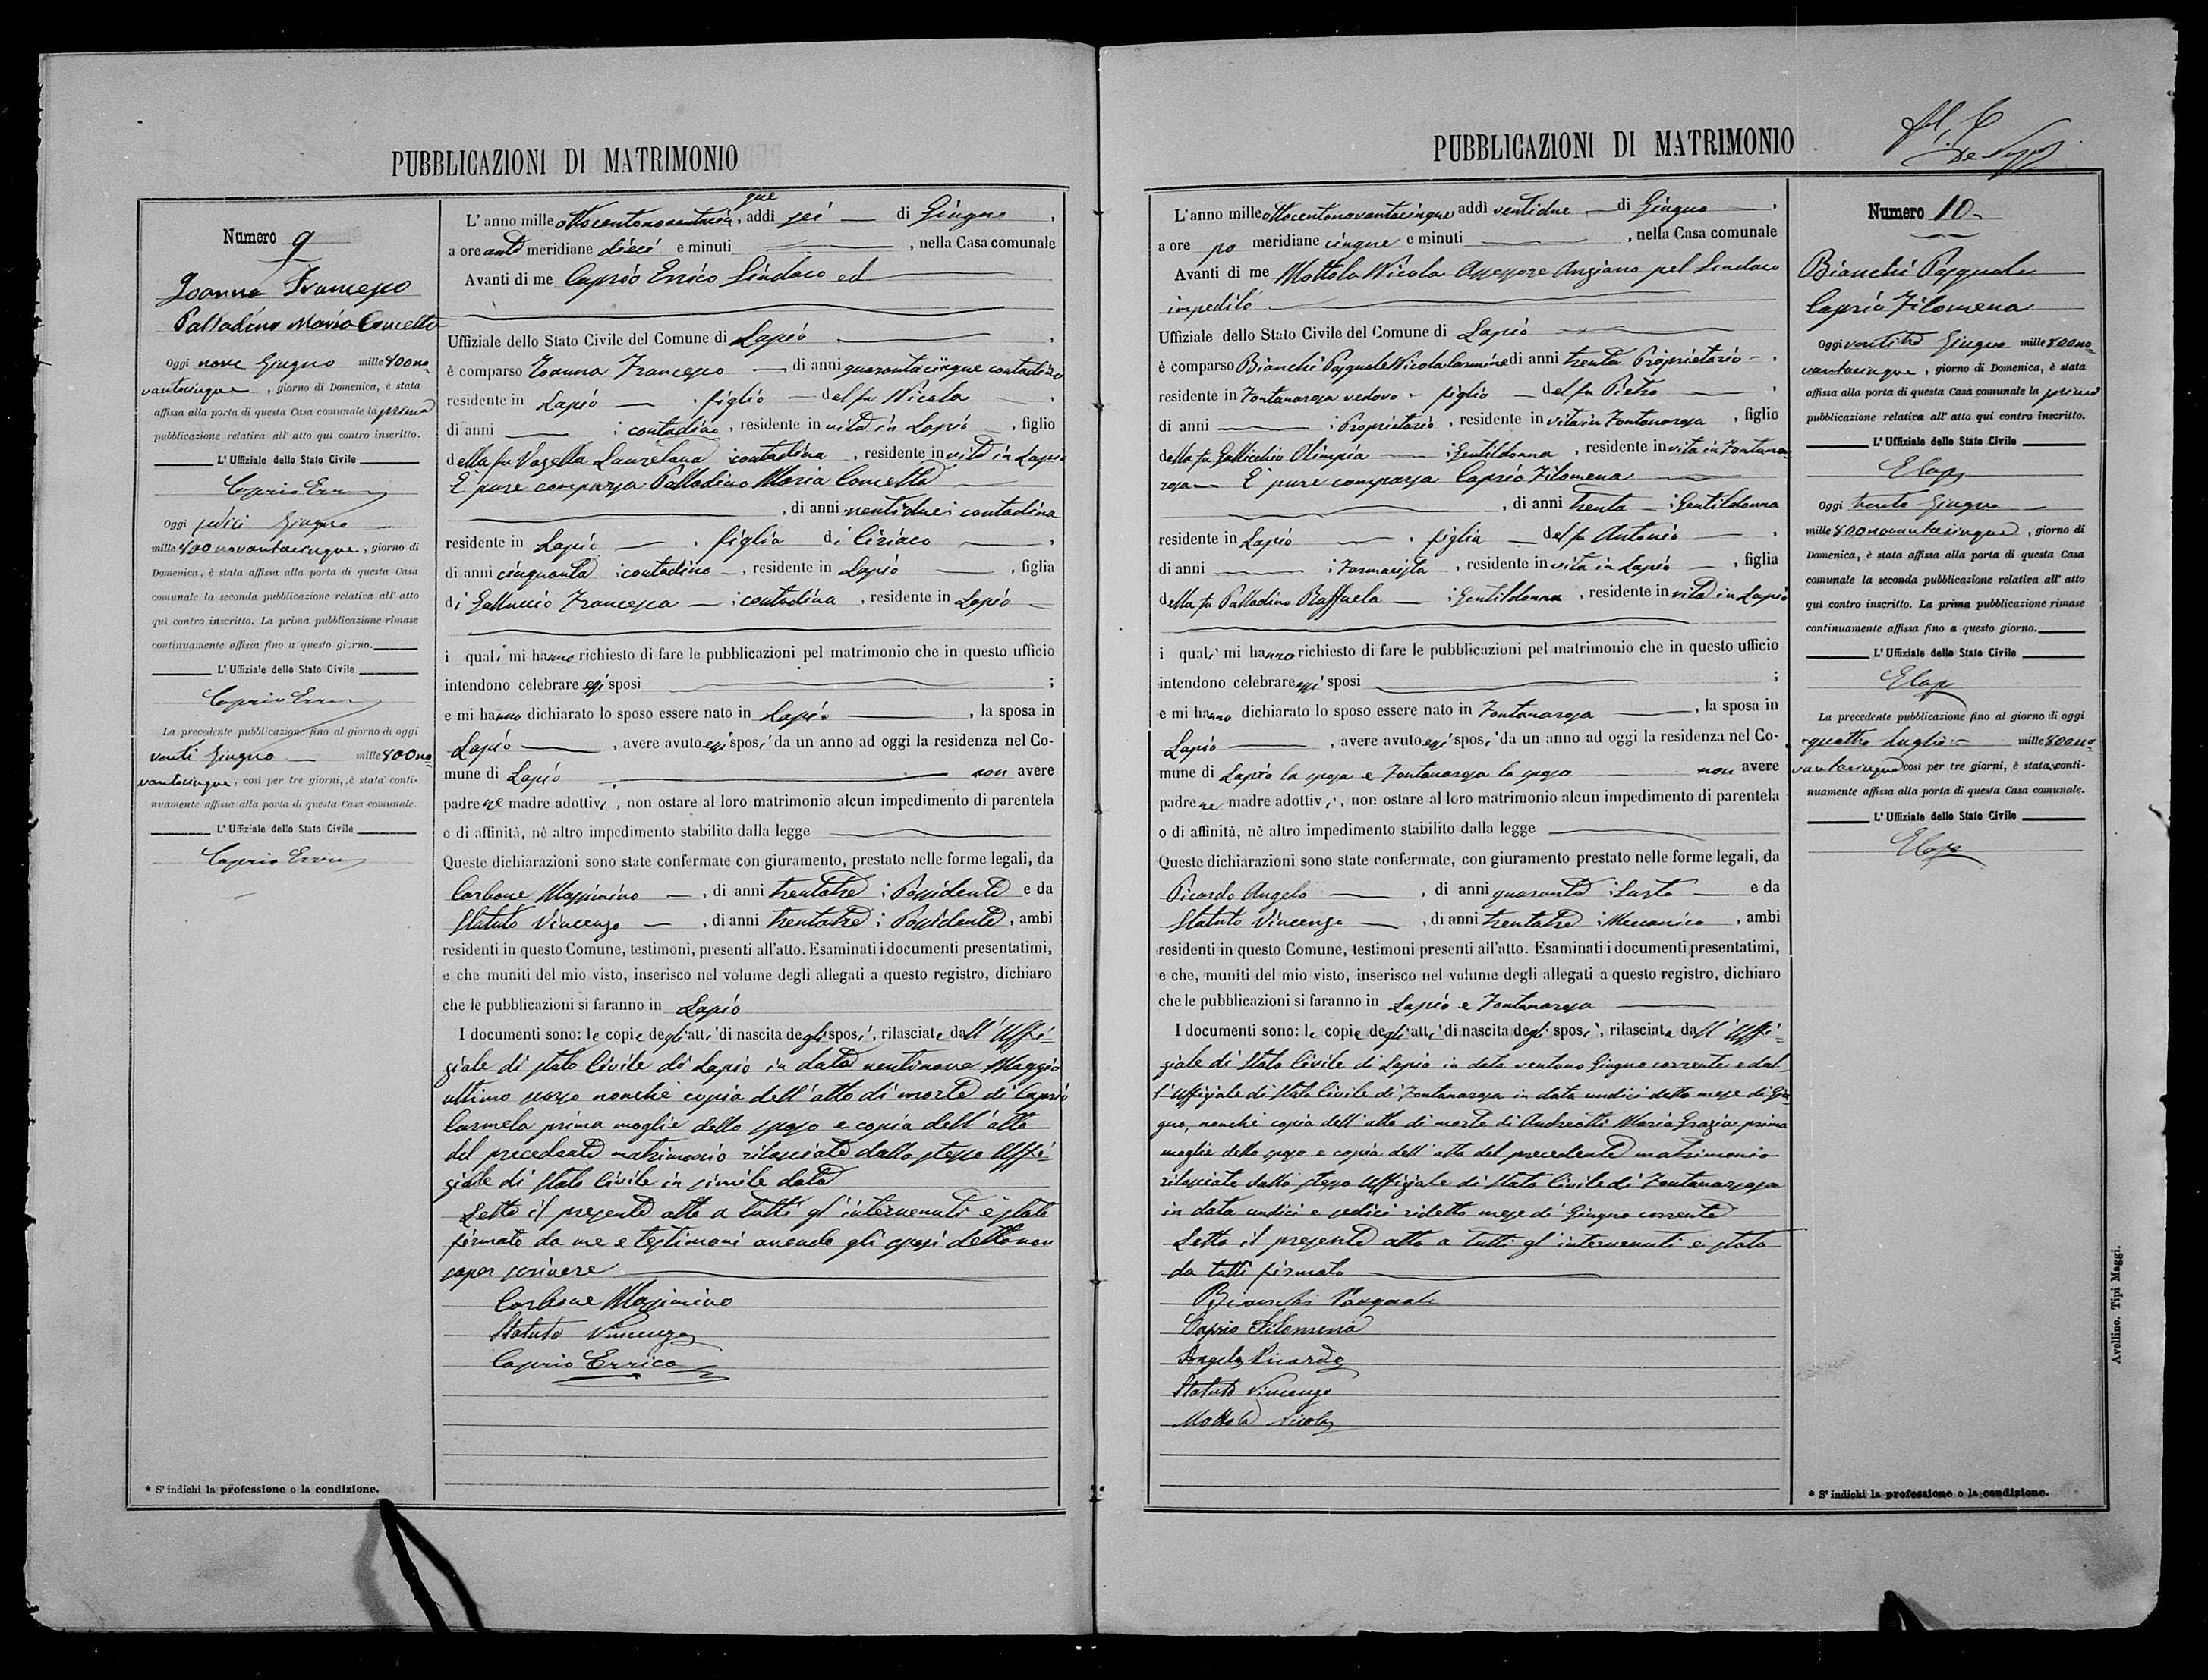 PUBBLICAZIONI DI MATRIMONIO
Numero 9
Joanna Francesco
Palladino Maria Concetta
Oggi nove Giugno mille 800no-
vantacinque, giorno di Domenica, è stata
affissa alla porta di questa Casa comunale la prima
pubblicazione relativa all' atto qui contro inscritto.
L' Uffiziale dello Stato Civile
Caprio Errico
Oggi sedici Giugno
mille 800novantacinque, giorno di
Domenica, è stata affissa alla porta di questa Casa
comunale la seconda pubblicazione relativa all' atto
qui contro inscritto. La prima pubblicazione rimase
continuamente affissa fino a questo giorno.
L' Uffiziale dello Stato Civile
Caprio Errico
La precedente pubblicazione fino al giorno di oggi
venti Giugno mille 800no-
vantacinque, così per tre giorni, è stata conti-
nuamente affissa alla porta di questa Casa comunale.
L' Uffiziale dello Stato Civile
Caprio Errico
* S' indichi la professione o la condizione.
L' anno mille ottocentonovantacin
que
, addì sei di Giugno,
a ore anti meridiane dieci e minuti , nella Casa comunale
Avanti di me Caprio Errico Sindaco ed
Uffiziale dello Stato Civile del Comune di Lapio,
è comparso Joanna Francesco di anni quarantacinque contadino
residente in Lapio, figlio del fu Nicola,
di anni ; contadino, residente in vita in Lapio, figlio
della fu Vozella Lauretana contadina, residente in vita in Lapio
È pure comparsa Palladino Maria Concetta
, di anni ventidue; contadina
residente in Lapio, figlia di Ciriaco,
di anni cinquanta contadino, residente in Lapio, figlia
di Galluccio Francesca ; contadina, residente in Lapio
i quali mi hanno richiesto di fare le pubblicazioni pel matrimonio che in questo ufficio
intendono celebrare essi sposi ;
e mi hanno dichiarato lo sposo essere nato in Lapio, la sposa in
Lapio, avere avuto essi sposi da un anno ad oggi la residenza nel Co-
mune di Lapio non avere
padre ne madre adottivi, non ostare al loro matrimonio alcun impedimento di parentela
o di affinità, nè altro impedimento stabilito dalla legge
Queste dichiarazioni sono state confermate con giuramento, prestato nelle forme legali, da
Carbone Massimino, di anni trentatre; Possidente e da
Statuto Vincenzo, di anni trentatre; Possidente, ambi
residenti in questo Comune, testimoni, presenti all'atto. Esaminati i documenti presentatimi,
e che muniti del mio visto, inserisco nel volume degli allegati a questo registro, dichiaro
che le pubblicazioni si faranno in Lapio
I documenti sono: le copie degli atti di nascita degli sposi, rilasciate dall' Uffi-
ziale di stato Civile di Lapio in data ventinove Maggio
ultimo scorso nonchè copia dell' atto di morte di Caprio
Carmela prima moglie dello sposo e copia dell' atto
del precedente matrimonio rilasciate dallo stesso Uffi-
ziale di stato Civile in simile data
Letto il presente atto a tutti gl' intervenuti è stato
firmato da me e testimoni avendo gli sposi detto non
saper scrivere
Carbone Massimino
Statuto Vincenzo
Caprio Errico
PUBBLICAZIONI DI MATRIMONIO
L' anno mille ottocentonovantacinque addì ventidue di Giugno,
a ore po meridiane cinque e minuti , nella Casa comunale
Avanti di me Mottola Nicola Assessore Anziano pel Sindaco
impedito
Uffiziale dello Stato Civile del Comune di Lapio
è comparso Bianchi Pasquale Nicola Carmine di anni trenta Proprietario,
residente in Fontanarosa vedovo, figlio del fu Pietro,
di anni ; Proprietario, residente in vita in Fontanarosa, figlio
della fu Gallicchio Olimpia ; Gentildonna, residente in vita in Fontana-
rosa È pure comparsa Caprio Filomena
, di anni trenta ; Gentildonna
residente in Lapio, figlia del fu Antonio,
di anni ; Farmacista, residente in vita in Lapio, figlia
della fu Palladino Raffaela ; Gentildonna, residente in vita in Lapio
i quali mi hanno richiesto di fare le pubblicazioni pel matrimonio che in questo ufficio
intendono celebrare essi sposi ;
e mi hanno dichiarato lo sposo essere nato in Fontanarosa, la sposa in
Lapio, avere avuto essi sposi da un anno ad oggi la residenza nel Co-
mune di Lapio la sposa e Fontanarosa lo sposo non avere
padre ne madre adottivi, non ostare al loro matrimonio alcun impedimento di parentela
o di affinità, nè altro impedimento stabilito dalla legge
Queste dichiarazioni sono state confermate, con giuramento prestato nelle forme legali, da
Picardo Angelo, di anni quaranta; Sarto e da
Statuto Vincenzo, di anni trentatre; Meccanico, ambi
residenti in questo Comune, testimoni presenti all'atto. Esaminati i documenti presentatimi,
e che, muniti del mio visto, inserisco nel volume degli allegati a questo registro, dichiaro
che le pubblicazioni si faranno in Lapio e Fontanarosa
I documenti sono: le copie degli atti di nascita degli sposi, rilasciate dall' Uffi-
ziale di Stato Civile di Lapio in data ventuno Giugno corrente e dal-
l' Uffiziale di Stato Civile di Fontanarosa in data undici detto mese di Giu-
gno, nonchè copia dell' atto di morte di Andreotti Maria Grazia prima
moglie dello sposo e copia dell' atto del precedente matrimonio
rilasciate dallo stesso Uffiziale di Stato Civile di Fontanarosa
in data undici e sedici ridetto mese di Giugno corrente
Letto il presente atto a tutti gl' intervenuti è stato
da tutti firmato
Bianchi Pasquale
Caprio Filomena
Angelo Picardo
Statuto Vincenzo
Mottola Nicola
Numero 10
Bianchi Pasquale
Caprio Filomena
Oggi ventitre Giugno mille 800no-
vantacinque, giorno di Domenica, è stata
affissa alla porta di questa Casa comunale la prima
pubblicazione relativa all' atto qui contro inscritto.
L' Uffiziale dello Stato Civile
ECap
Oggi trenta Giugno
mille 800novantacinque, giorno di
Domenica, è stata affissa alla porta di questa Casa
comunale la seconda pubblicazione relativa all' atto
qui contro inscritto. La prima pubblicazione rimase
continuamente affissa fino a questo giorno.
L' Uffiziale dello Stato Civile
ECap
La precedente pubblicazione fino al giorno di oggi
quattro Luglio mille 800no-
vantacinque così per tre giorni, è stata conti-
nuamente affissa alla porta di questa Casa comunale.
L' Uffiziale dello Stato Civile
ECap
* S' indichi la professione o la condizione.
Avellino. Tipi Maggi.